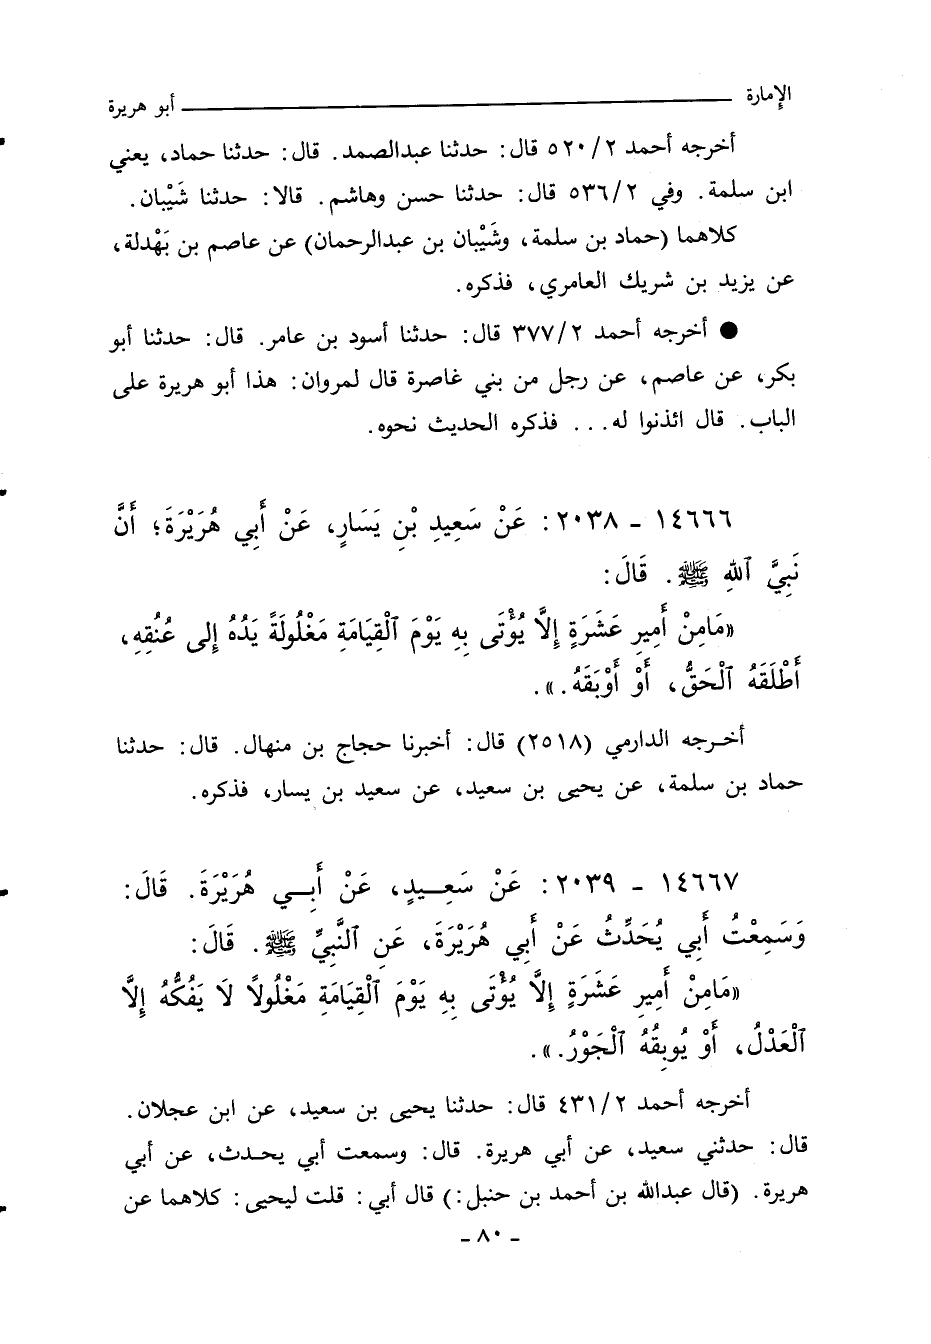 الإمارة ــــــــــــــــــــ أبو هريرة
أخرجه أحمد ٥٢٠/٢ قال: حدثنا عبدالصمد. قال: حدثنا حماد، يعني
ابن سلمة. وفي ٥٣٦/٢ قال: حدثنا حسن وهاشم. قالا: حدثنا شَيْبان.
كلاهما (حماد بن سلمة، وشَيْبان بن عبدالرحمان) عن عاصم بن بَهْدلة،
عن يزيد بن شريك العامري، فذكره.
● أخرجه أحمد ٣٧٧/٢ قال: حدثنا أسود بن عامر. قال: حدثنا أبو
بكر، عن عاصم، عن رجل من بني غاصرة قال لمروان: هذا أبو هريرة على
الباب. قال ائذنوا له... فذكره الحديث نحوه.
١٤٦٦٦ - ٢٠٣٨: عَنْ سَعِيدِ بْنِ يَسَارٍ، عَنْ أَبِي هُرَيْرَةَ؛ أَنَّ
نَبِيَّ ٱللهِ ﷺ. قَالَ:
«مَامِنْ أَمِيرِ عَشَرَةٍ إِلَّا يُؤْتَى بِهِ يَوْمَ ٱلْقِيَامَةِ مَغْلُولَةً يَدُهُ إِلى عُنُقِهِ،
أَطْلَقَهُ ٱلْحَقُّ، أَوْ أَوْبَقَهُ.».
أخـرجه الدارمي (٢٥١٨) قال: أخبرنا حجاج بن منهال. قال: حدثنا
حماد بن سلمة، عن يحيى بن سعيد، عن سعيد بن يسار، فذكره.
١٤٦٦٧ - ٢٠٣٩: عَنْ سَعِـيدٍ، عَنْ أَبِـي هُرَيْرَةَ. قَالَ:
وَسَمِعْتُ أَبِي يُحَدِّثُ عَنْ أَبِي هُرَيْرَةَ، عَنِ ٱلنَّبِيِّ ﷺ. قَالَ:
«مَامِنْ أَمِيرِ عَشَرَةٍ إِلَّا يُؤْتَى بِهِ يَوْمَ ٱلْقِيَامَةِ مَغْلُولًا لَا يَفُكُّهُ إِلَّا
ٱلْعَدْلُ، أَوْ يُوبِقُهُ ٱلْجَوْرُ.».
أخرجه أحمد ٤٣١/٢ قال: حدثنا يحيى بن سعيد، عن ابن عجلان.
قال: حدثني سعيد، عن أبي هريرة. قال: وسمعت أبي يحـدث، عن أبي
هريرة. (قال عبدالله بن أحمد بن حنبل:) قال أبي: قلت ليحيى: كلاهما عن
- ٨٠ -